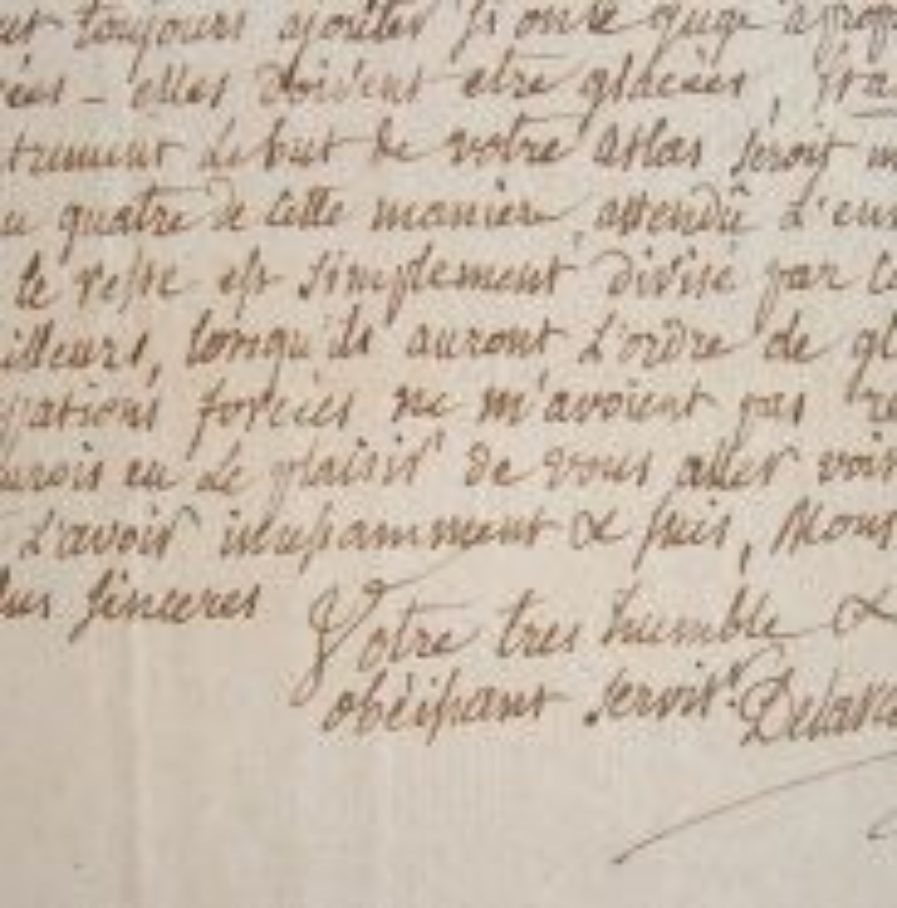 toujours ajouter si on le juge appro
ées - elles doivent etre glacées, Fra
trement le but de votre atlas seroit m
u quatre de cette maniere, attendû L'en
le reste est simplement divisé par Ca
illeurs, lorsqu'ils auront L'ordre de gl
pations forcées ne m'avoient pas re
urois eu Le plaisir de vous aller voir
L'avoir incessamment & suis, Mons
lus sinceres
Votre tres humble &
obéissant servit.r Delama